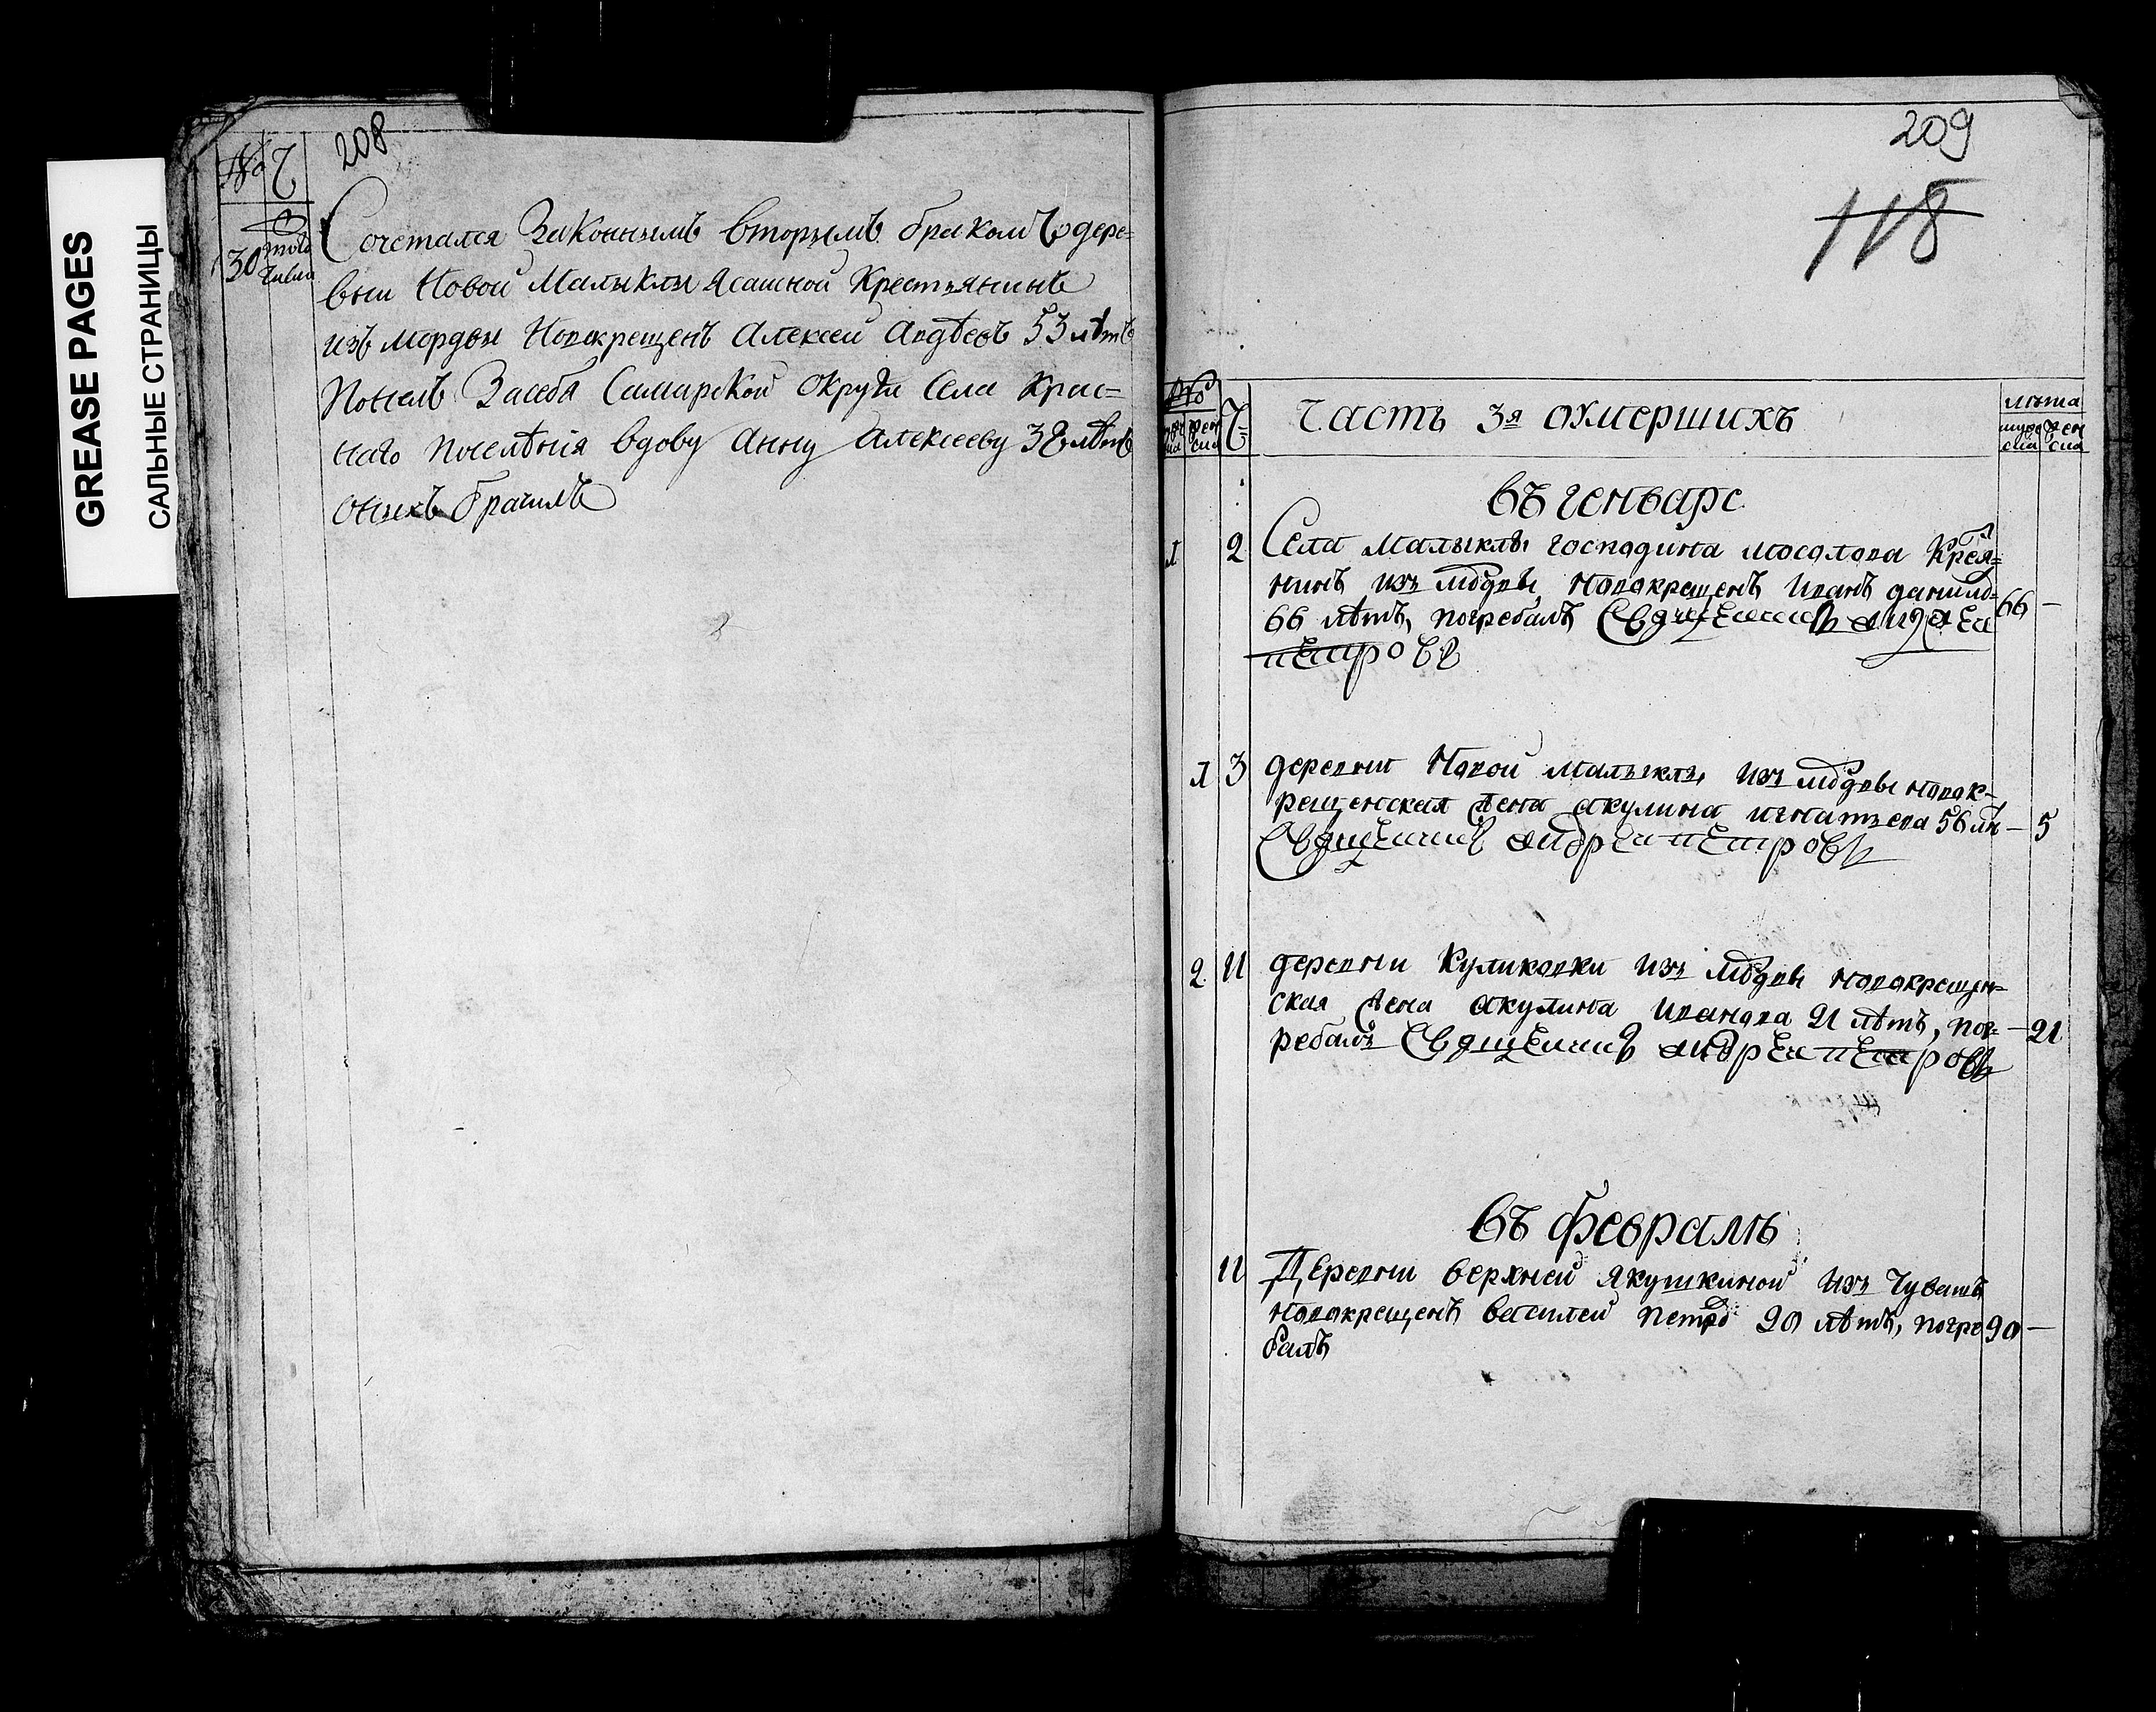 GREASE PAGES
САЛЬНЫЕ СТРАНИЦЫ
208
№ Ч
30 того числа
Сочетался Законнымъ вторымъ бракомъ дере=
вни Новой Малыклы Ясашной Крестьянинъ
изъ мордвы Новокрещенъ Алексей Авдѣевъ 53 лѣтъ
Понелъ Засебя Самарской округи Села Крас=
наго поселѣнія вдову Анну Алексееву 38 лѣтъ
оныхъ брачилъ
209
118
№ Ч Часть 3я о умершихъ лѣта
въ генваре
1 2 Села Малыклы господина Мосолова Кресτя=
нинъ изъ мордвы новокрещенъ Иванъ данило=
66 лѣтъ, погребалъ Священникъ андреи 66 —
петровъ
1 3 деревни Новой малыклы изъ мордвы новок=
рещенская жена акулина игнатьева 56 лѣ — 5
Священникъ андреи петровъ
2 11 деревни Куликовки изъ мордвы новокрещен=
ская жена акулина иванова 21 лѣтъ, пог= — 21
ребалъ Священникъ андреи петровъ
въ февралѣ
11 Деревни верхней якушкиной изъ чувашъ
новокрещенъ василей петро 90 лѣтъ, погре 90 —
балъ